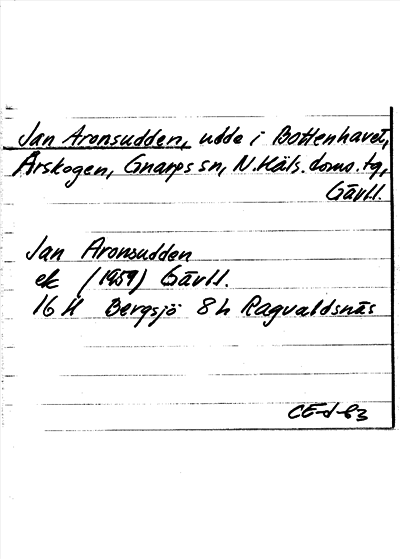 Jan Aronsudden, udde i Bottenhavet,
Årskogen, Gnarps sn, N.Häls.doms.tg,
Gävl.l.
Jan Aronsudden
ek (1959) Gävl.l.
16 H Bergsjö 8 h Ragvaldsnäs
CE-d-63